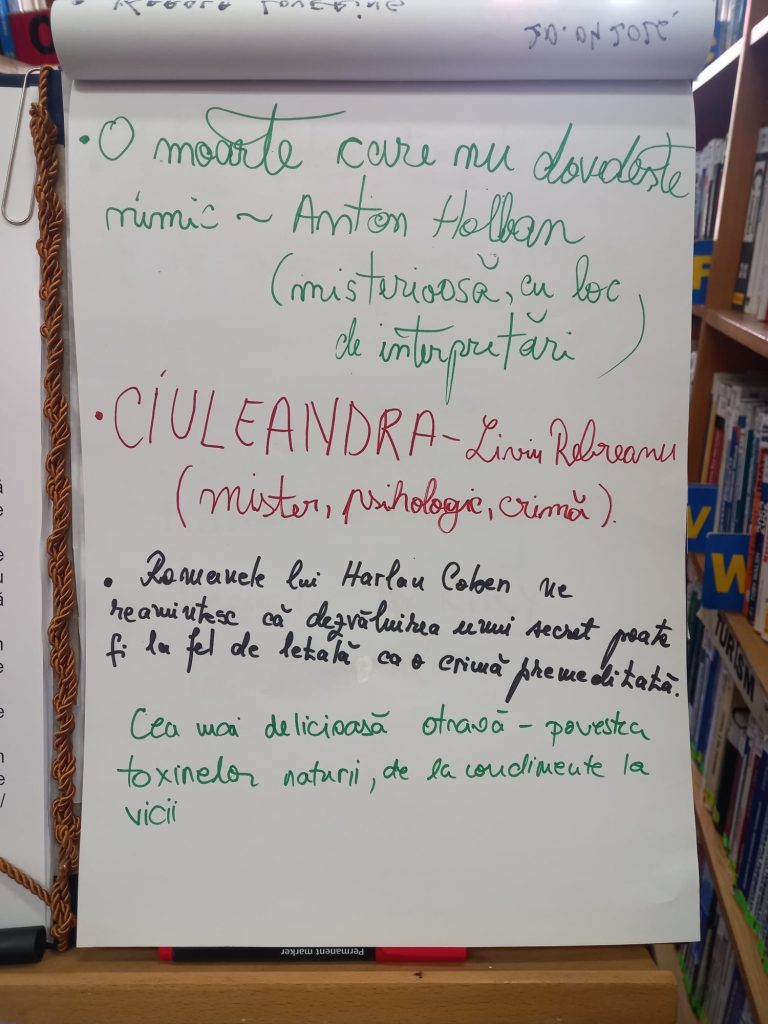 • O moarte care nu dovedește
nimic ~ Anton Holban
(misterioasă, cu loc
de interpretări)
• CIULEANDRA - Liviu Rebreanu
(mister, psihologic, crimă).
• Romanele lui Harlan Coben ne
reamintesc că dezvăluirea unui secret poate
fi la fel de letală ca o crimă premeditată.
Cea mai delicioasă otravă - povestea
toxinelor naturii, de la condimente la
vicii
Permanent marker
F
V
W
TURISM